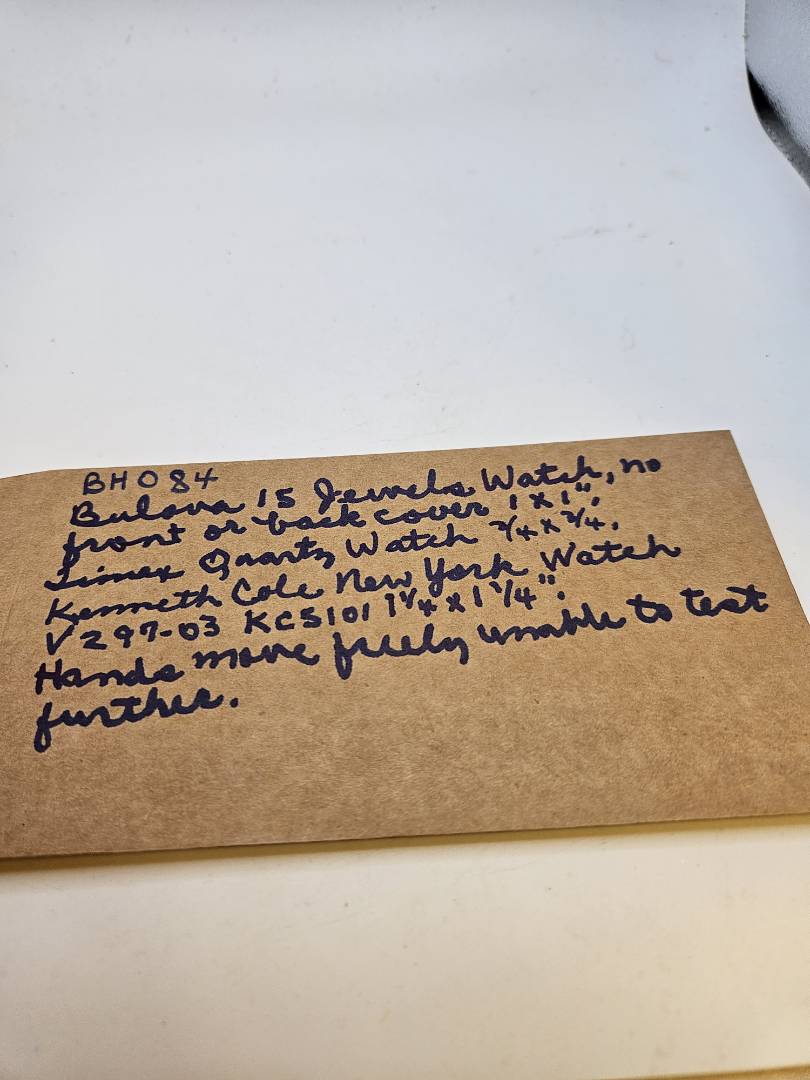 BH084
Bulova 15 Jewels Watch, no
front or back cover 1 x 1",
Timex Quartz Watch 3/4 x 3/4,
Kenneth Cole New York Watch
V297-03 KC5101 1 1/4 x 1 1/4".
Hands move freely unable to test
further.